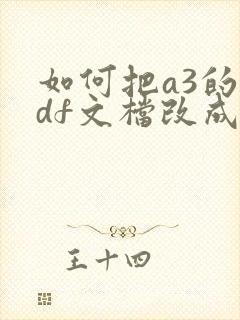 如何把a3的
df文檔改成
王十四